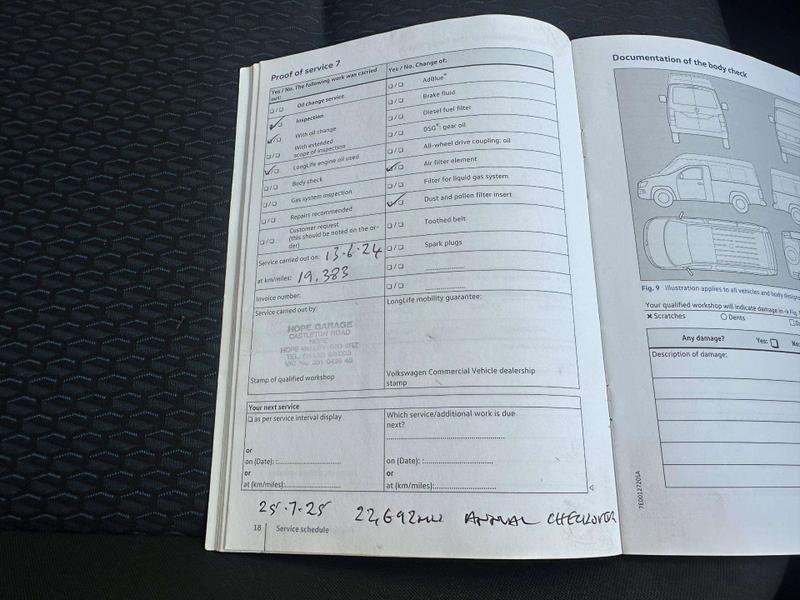 Proof of service 7
Yes / No. The following work was carried out:
❑ / ❑ Oil change service
❑ / ❑ Inspection
❑ / ❑ With oil change
❑ / ❑ With extended scope of inspection
❑ / ❑ LongLife engine oil used
❑ / ❑ Body check
❑ / ❑ Gas system inspection
❑ / ❑ Repairs recommended
❑ / ❑ Customer request
(this should be noted on the or-
der)
Service carried out on: 13.6.24
at km/miles: 19.383
Invoice number:
Service carried out by:
HOPE GARAGE
CASTLETON ROAD
HOPE
HOPE VALLEY
Stamp of qualified workshop
Yes / No. Change of:
❑ / ❑ AdBlue®
❑ / ❑ Brake fluid
❑ / ❑ Diesel fuel filter
❑ / ❑ DSG®: gear oil
❑ / ❑ All-wheel drive coupling: oil
❑ / ❑ Air filter element
❑ / ❑ Filter for liquid gas system
❑ / ❑ Dust and pollen filter insert
❑ / ❑ Toothed belt
❑ / ❑ Spark plugs
❑ / ❑
❑ / ❑
LongLife mobility guarantee:
Volkswagen Commercial Vehicle dealership
stamp
Your next service
❑ as per service interval display
or
on (Date):
or
at (km/miles):
Which service/additional work is due
next?
on (Date):
or
at (km/miles):
25.7.25 22,692 ANNUAL CHECKOVER
18 Service schedule
Documentation of the body check
Fig. 9 Illustration applies to all vehicles and body
Your qualified workshop will indicate damage in → Fig.
✗ Scratches ○ Dents
Any damage? Yes: ❑ No:
Description of damage:
7E0012720SA